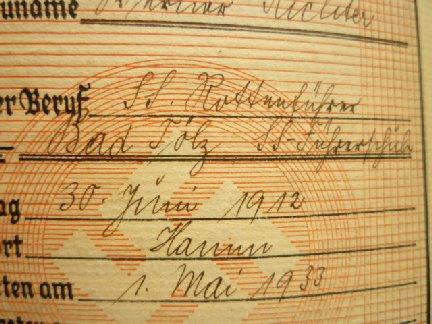 uname Werner Richter
er Beruf SS. Rottenführer
Bad Tölz SS-Führerschule
ag 30. Juni 1912
ort Hamm
ten am 1. Mai 1933